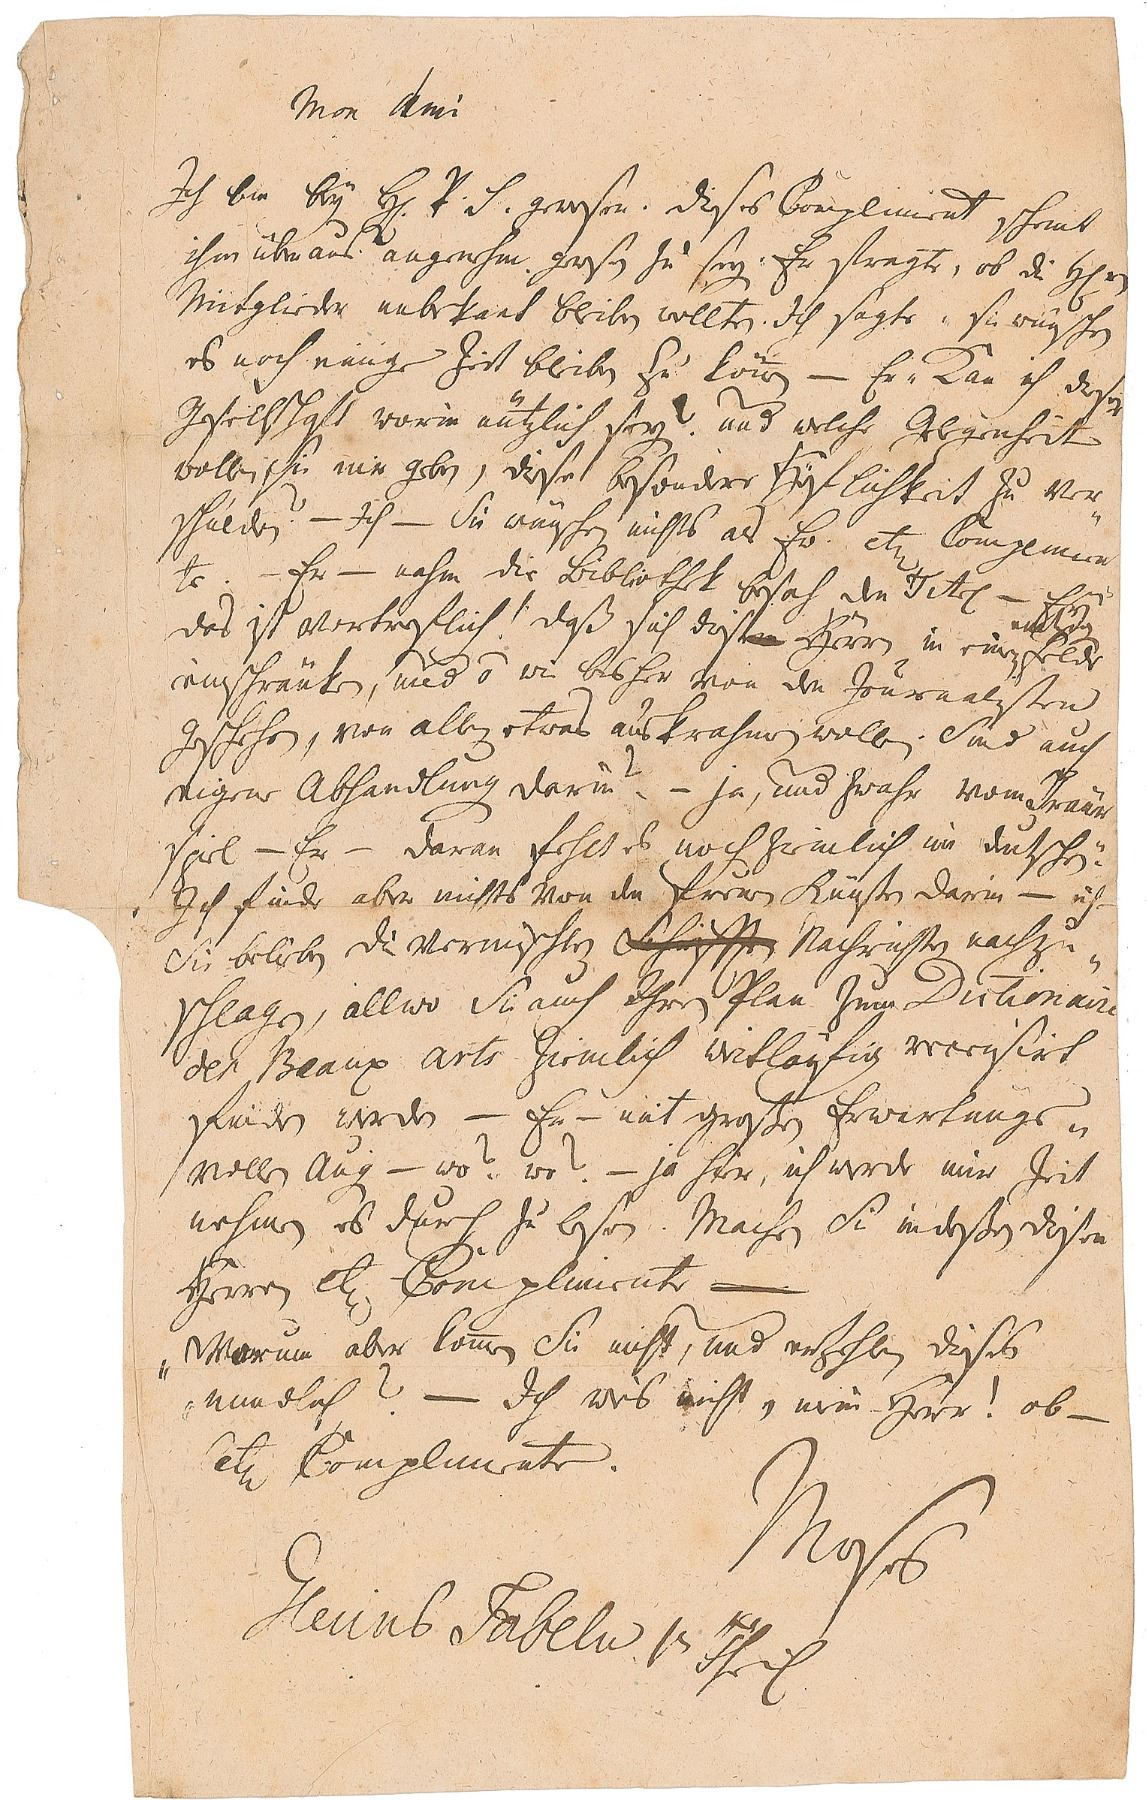 Mon Ami
Ich bin bey H. P. S. gewesen. Dieses Compliment scheint
ihm überaus angenehm gewesen zu seyn. Er fragte, ob die HH.
Mitglieder unbekant bleiben wollten. Ich sagte, sie wünschen
es noch einige Zeit bleiben zu können — Er „ Kan ich dieser
Gesellschaft worin nützlich seyn? und welche Gelegenheit
wollen Sie mir geben, diese besondere Höflichkeit zu ver„
schulden? — Ich — Sie wünschen nichts als Ew. etc Complimen
te. — Er — nahm die Bibliothek besah den Titel — Ey
das ist vortreflich! daß sich diese Herrn in einem Felde
einschränken, und õ wie bisher von den Journalisten
geschehen, von allem etwas auskrahmen wollen. Sind auch
eigene Abhandlung darin? — ja, und zwahr vom Trauer
spiel — Er — daran fehlt es noch ziemlich im deutschen.
Ich finde aber nichts von den Künsten darin — ich —
Sie belieben die vermischten Nachrichten nachzu„
schlagen, allwo Sie auch Ihren Plan zum Dictionaire
des Beaux arts ziemlich weitläufig recensirt
finden werden — Er — mit großen Erwartungs„
vollen Aug — wo? wo? — ja hier, ich werde mir Zeit
nehmen es durch zu lesen. Machen Sie indeßen diesen
Herren etc Complimente —
„ Warum aber kommen Sie nicht, und erzehlen dieses
„ mündlich? — Ich weis nicht, mein Herr! ob —
etc Complimente.
Moses
Gleims Fabeln 1n Theil